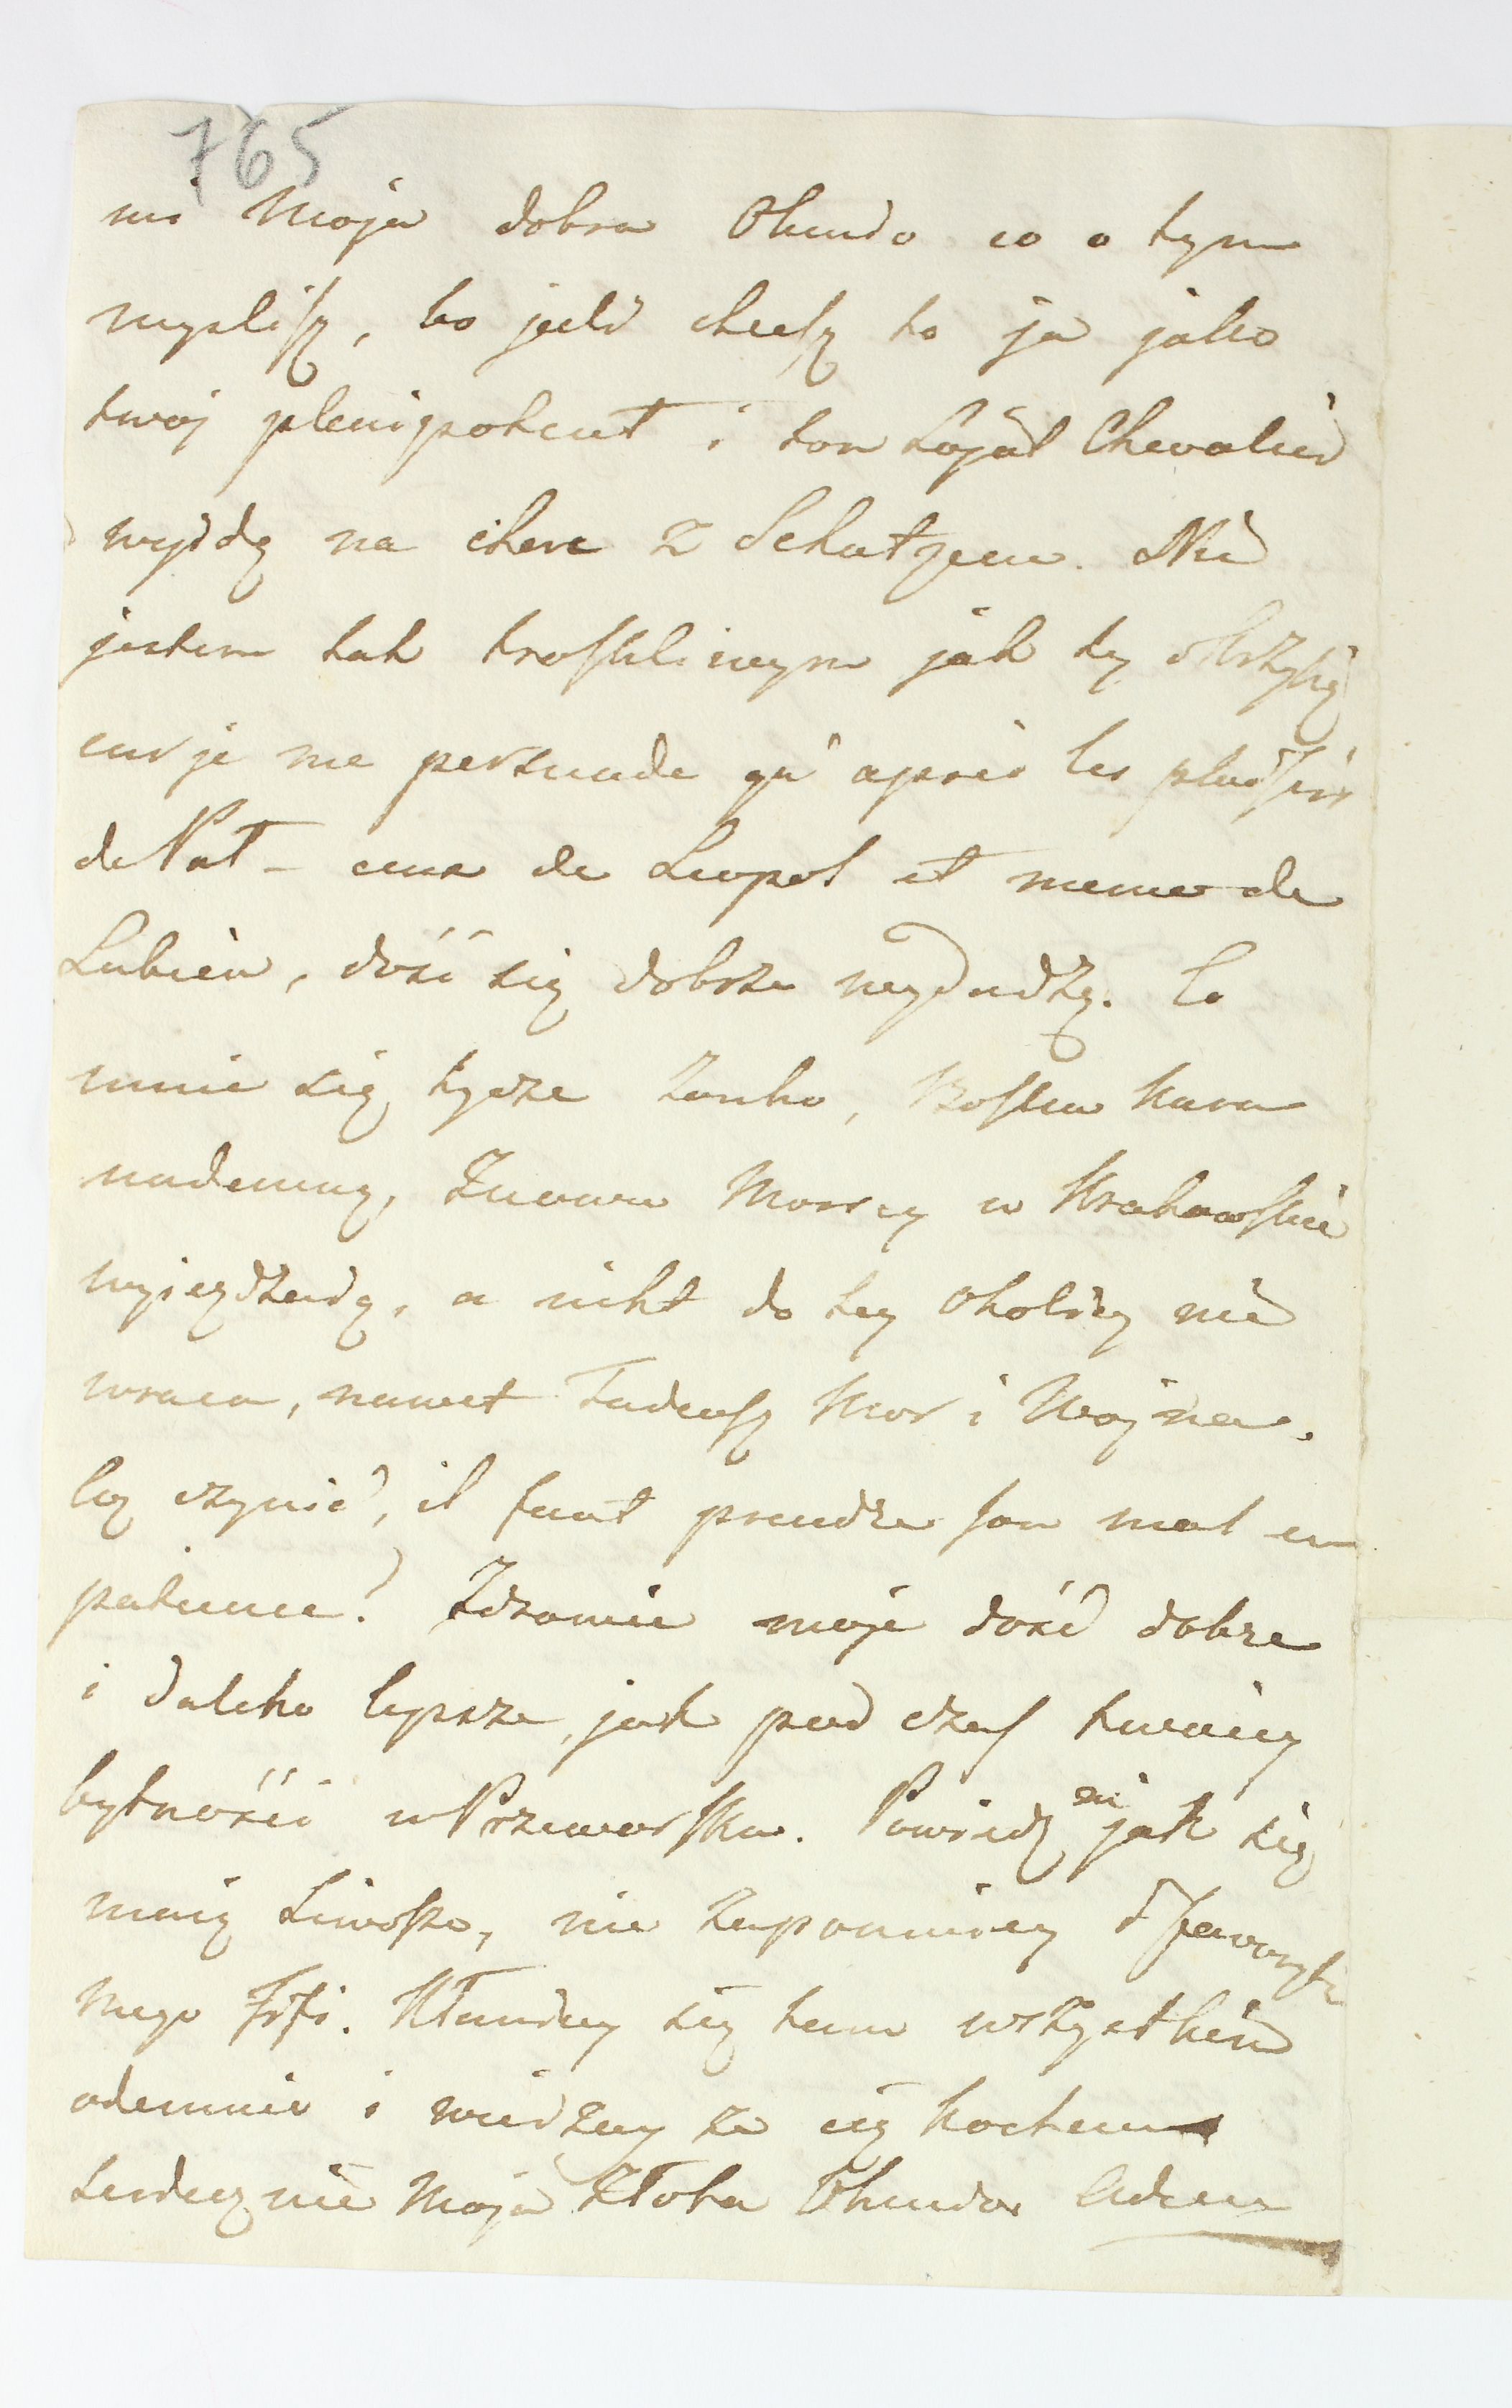 765
mi Moja dobra Chudo co o tym
myslisz, bo jesli chcesz to ja jako
twoj plenipotent i ton Loyal Chevalier
wyidę na ihre z Schatzem. Nie
jestem tak troskliwym jak ty
car je me persuade qu'après les
de Nat - ceux de Leopol et meme de
Lubień, dość się dobrze
mnie się tycze Boska kara
nademną, znowu Morscy w Krakowskie
wyieżdżaią, a nikt do tey okolicy nie
wraca, nawet Tadeusz Mor i Wojna.
Cóż czynić, il faut prendre son mal en
patience! Zdrowie moje dość dobre
i daleko lepsze, jak pod czas twoiey
bytności w Przeworsku. Powiedz mi jak się
maią Siwosze, nie zapominay
mego Fifi. Kłaniay się tam wszystkim
odemnie i wierzay że cię kocham
serdecznie Moja Złota Adam